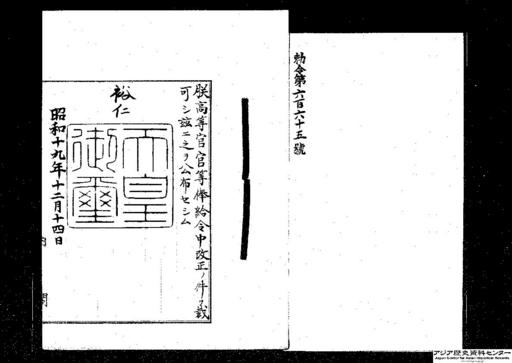 勅令第六百六十五號
朕高等官官等俸給令中改正ノ件ヲ裁
可シ茲ニ之ヲ公布セシム
裕仁
天皇
御璽
昭和十九年十二月十四日
内閣
アジア歴史資料センター
Japan Center for Asian Historical Records